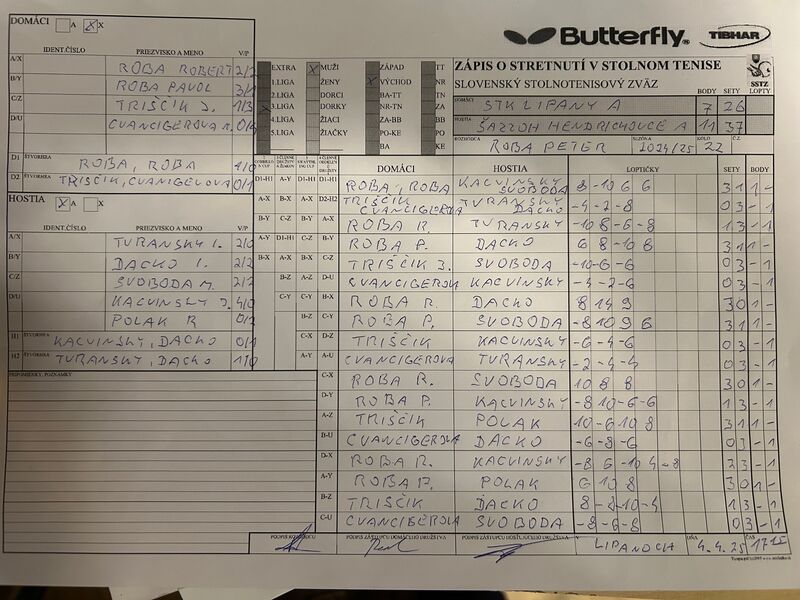 DOMÁCI A X
IDENT.ČÍSLO PRIEZVISKO A MENO V/P
A/X ROBA ROBERT 2/2
B/Y ROBA PAVOL 3/1
C/Z TRIŠČÍK J. 1/3
D/U CVANCIGEROVA 0/4
D1 ŠTVORHRA ROBA, ROBA 1/0
D2 ŠTVORHRA TRIŠČÍK, CVANCIGEROVA 0/1
HOSTIA A X
IDENT.ČÍSLO PRIEZVISKO A MENO V/P
A/X TURANSKY I. 2/0
B/Y DACKO I. 2/2
C/Z SVOBODA M. 2/2
D/U KACVINSKY J. 4/0
POLAK R 0/2
H1 ŠTVORHRA KACVINSKY, DACKO 0/1
H2 ŠTVORHRA TURANSKY, DACKO 1/0
PRIPOMIENKY, POZNÁMKY
Butterfly TIBHAR
EXTRA X MUŽI ZÁPAD TT
1.LIGA ŽENY X VÝCHOD NR
2.LIGA DORCI BA-TT TN
3.LIGA DORKY NR-TN ZA
4.LIGA ŽIACI ZA-BB BB
5.LIGA ŽIAČKY PO-KE PO
BA KE
ZÁPIS O STRETNUTÍ V STOLNOM TENISE
SLOVENSKÝ STOLNOTENISOVÝ ZVÄZ
SSTZ
BODY SETY LOPTY
DOMÁCI STK LIPANY A 7 26
HOSTIA ŠAZZOH HENDRICHOVCE A 11 37
ROZHODCA ROBA PETER SEZÓNA 2024/25 KOLO 22 Č.Z.
DOMÁCI HOSTIA LOPTIČKY SETY BODY
D1-H1 A-Y D1-H1 D1-H1 ROBA, ROBA KACVINSKY SVOBODA 8 -10 6 6 3 1 1 -
A-X B-X A-X D2-H2 TRIŠČÍK CVANCIGEROVA TURANSKY DACKO -4 -2 -8 0 3 - 1
B-Y C-Z B-Y A-X ROBA R. TURANSKY -10 8 -6 -8 1 3 - 1
A-Y D1-H1 C-Z B-Y ROBA P. DACKO 6 8 -10 8 3 1 1 -
B-X A-X B-X C-Z TRIŠČÍK J. SVOBODA -10 -6 -6 0 3 - 1
B-Z A-Z D-U CVANCIGEROVA KACVINSKY -4 -2 -6 0 3 - 1
C-Y C-Y B-X ROBA R. DACKO 8 14 9 3 0 1 -
B-Z C-Y ROBA P. SVOBODA -8 10 9 6 3 1 1 -
C-X D-Z TRIŠČÍK KACVINSKY -6 -4 -6 0 3 - 1
A-Y A-U CVANCIGEROVA TURANSKY -2 -4 -4 0 3 - 1
C-X ROBA R. SVOBODA 10 8 8 3 0 1 -
D-Y ROBA P. KACVINSKY -8 10 -6 -6 1 3 - 1
A-Z TRIŠČÍK POLAK 10 -6 10 8 3 1 1 -
B-U CVANCIGEROVA DACKO -6 -8 -6 0 3 - 1
D-X ROBA R. KACVINSKY -8 6 -10 4 -8 2 3 - 1
A-Y ROBA P. POLAK 6 10 8 3 0 1 -
B-Z TRIŠČÍK DACKO 8 -8 -10 -4 1 3 - 1
C-U CVANCIGEROVA SVOBODA -8 -6 -8 0 3 - 1
PODPIS ROZHODCU PODPIS ZÁSTUPCU DOMÁCEHO DRUŽSTVA PODPIS ZÁSTUPCU HOSŤUJÚCEHO DRUŽSTVA V LIPANOCH DŇA 4.4.25 ČAS 17 15